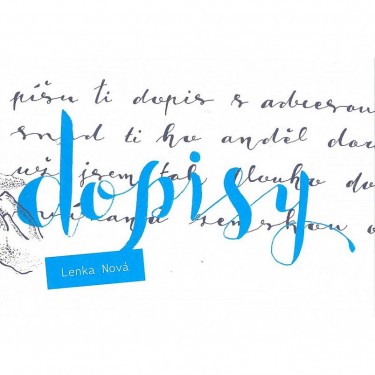 píšu ti dopis s adresou
snad ti ho anděl dor
už jsem tak dlouho do
dopisy
Lenka Nová